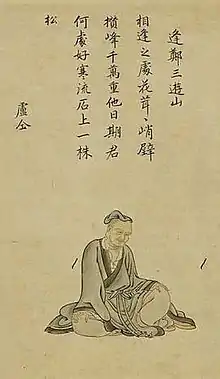 逢鄭三遊山
相逢之處花茸〻峭壁
攅峰千萬重他日期君
何處好寒流石上一株
松
盧仝